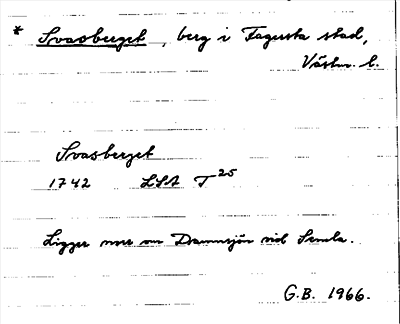 * Svasberget, berg i Fagersta stad,
Västm. l.
Svasberget
1742 LSA T 25
Ligger norr om Dammsjön vid Semla.
G.B. 1966.